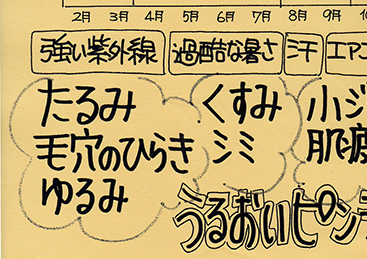 2月 3月 4月 5月 6月 7月 8月 9月
強い紫外線 過酷な暑さ 汗 エアコ
たるみ くすみ 小ジ
毛穴のひらき シミ 肌疲
ゆるみ
うるおいピンラ